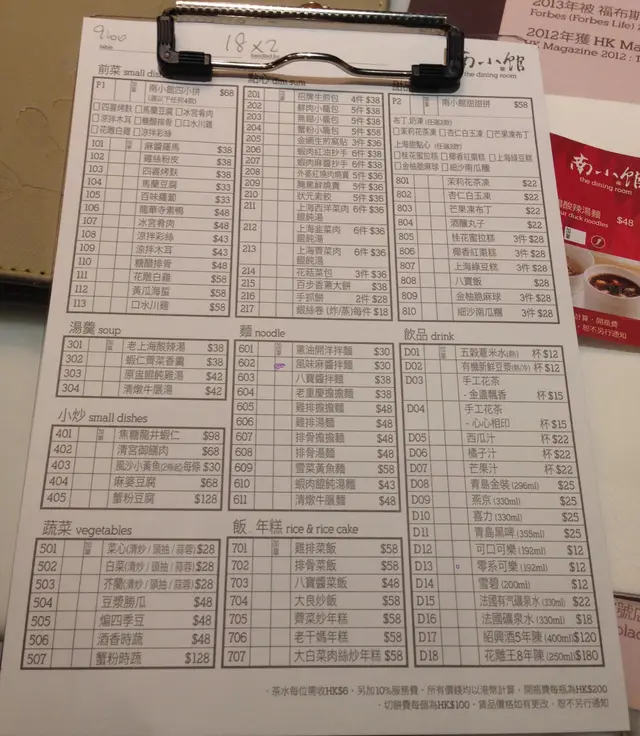 9600
18x2
南小館
the dining room
2013年被 福布斯
Forbes (Forbes Life)
2012年獲 HK Ma
HK Magazine 2012 : T
南小館
the dining room
酸辣湯麵
duck noodles
$48
前菜 small dishes
P1 南小館四小拼 $68
(選以下任何4款)
□四喜烤麩 □馬蘭豆腐 □冰宮肴肉
□涼拌木耳 □糖醋排骨 □口水川雞
□花雕白雞 □涼拌彩絲
101 麻醬蓮馬 $38
102 雞絲粉皮 $38
103 四喜烤麩 $38
104 馬蘭豆腐 $33
105 百味蘿蔔 $33
106 龍華寺素鴨 $48
107 冰宮肴肉 $48
108 涼拌彩絲 $43
109 涼拌木耳 $43
110 糖醋排骨 $48
111 花雕白雞 $58
112 黃瓜海蜇 $58
113 口水川雞 $58
點心 dim sum
201 招牌生煎包 4件 $38
202 鮮肉小籠包 5件 $38
203 無錫小籠包 5件 $38
204 蟹粉小籠包 5件 $58
205 金網生煎窩貼 3件 $36
206 蝦肉紅油抄手 6件 $36
207 蝦肉麻醬抄手 6件 $36
208 外婆紅燒肉燒賣 5件 $36
209 腌篤鮮燒賣 5件 $36
210 狀元素餃 5件 $36
211 上海西洋菜肉餛飩湯 6件 $36
212 上海韭菜肉餛飩湯 6件 $36
213 上海薺菜肉餛飩湯 6件 $36
214 花菇菜包 3件 $36
215 百步香蔥大餅 $38
216 手抓餅 2件 $28
217 銀絲卷 (炸/蒸) 每件 $18
P2 南小館甜甜拼 $58
布丁,奶凍 (任選2款)
□茉莉花茶凍 □杏仁白玉凍 □芒果凍布丁
上海甜點心 (任選2款)
□桂花蜜拉糕 □椰香紅棗糕 □上海綠豆糕
□金柚脆麻球 □細沙南瓜糰
801 茉莉花茶凍 $22
802 杏仁白玉凍 $22
803 芒果凍布丁 $22
804 酒釀丸子 $22
805 桂花蜜拉糕 3件 $28
806 椰香紅棗糕 3件 $28
807 上海綠豆糕 3件 $28
808 八寶飯 $28
809 金柚脆麻球 3件 $28
810 細沙南瓜糰 3件 $28
湯羹 soup
301 老上海酸辣湯 $38
302 蝦仁薺菜香羹 $38
303 原盅餛飩雞湯 $42
304 清燉牛腰湯 $42
小炒 small dishes
401 焦糖龍井蝦仁 $98
402 清宮御膳肉 $68
403 風沙小黃魚 (2條起) 每條 $30
404 麻婆豆腐 $68
405 蟹粉豆腐 $128
蔬菜 vegetables
501 菜心 (清炒 / 頭抽 / 蒜蓉) $28
502 白菜 (清炒 / 頭抽 / 蒜蓉) $28
503 芥蘭 (清炒 / 頭抽 / 蒜蓉) $28
504 豆漿勝瓜 $48
505 煸四季豆 $48
506 酒香時蔬 $48
507 蟹粉時蔬 $128
麵 noodle
601 蔥油開洋拌麵 $30
602 風味麻醬拌麵 $30
603 八寶醬拌麵 $38
604 老重慶擔擔麵 $38
605 雞排擔擔麵 $48
606 雞排湯麵 $48
607 排骨擔擔麵 $48
608 排骨湯麵 $48
609 雪菜黃魚麵 $58
610 蝦肉餛飩湯麵 $43
611 清燉牛腰麵 $48
飯 . 年糕 rice & rice cake
701 雞排菜飯 $58
702 排骨菜飯 $58
703 八寶醬菜飯 $48
704 大良炒飯 $58
705 薺菜炒年糕 $58
706 老干媽年糕 $58
707 大白菜肉絲炒年糕 $58
飲品 drink
D01 五穀薏米水 (熱) 杯 $12
D02 有機新鮮豆漿 (熱/冷) 杯 $12
D03 手工花茶
- 金盞飄香 杯 $15
D04 手工花茶
- 心心相印 杯 $15
D05 西瓜汁 杯 $22
D06 橘子汁 杯 $22
D07 芒果汁 杯 $22
D08 青島金裝 (296ml) $25
D09 燕京 (330ml) $25
D10 喜力 (330ml) $25
D11 青島黑啤 (355ml) $25
D12 可口可樂 (192ml) $12
D13 零系可樂 (192ml) $12
D14 雪碧 (200ml) $12
D15 法國有汽礦泉水 (330ml) $22
D16 法國礦泉水 (330ml) $18
D17 紹興酒5年陳 (400ml) $120
D18 花雕王8年陳 (250ml) $180
· 茶水每位需收HK$6，另加10%服務費，所有價錢均以港幣計算，開瓶費每瓶為HK$200
· 切餅費每個為HK$100，貨品價格如有更改，恕不另行通知